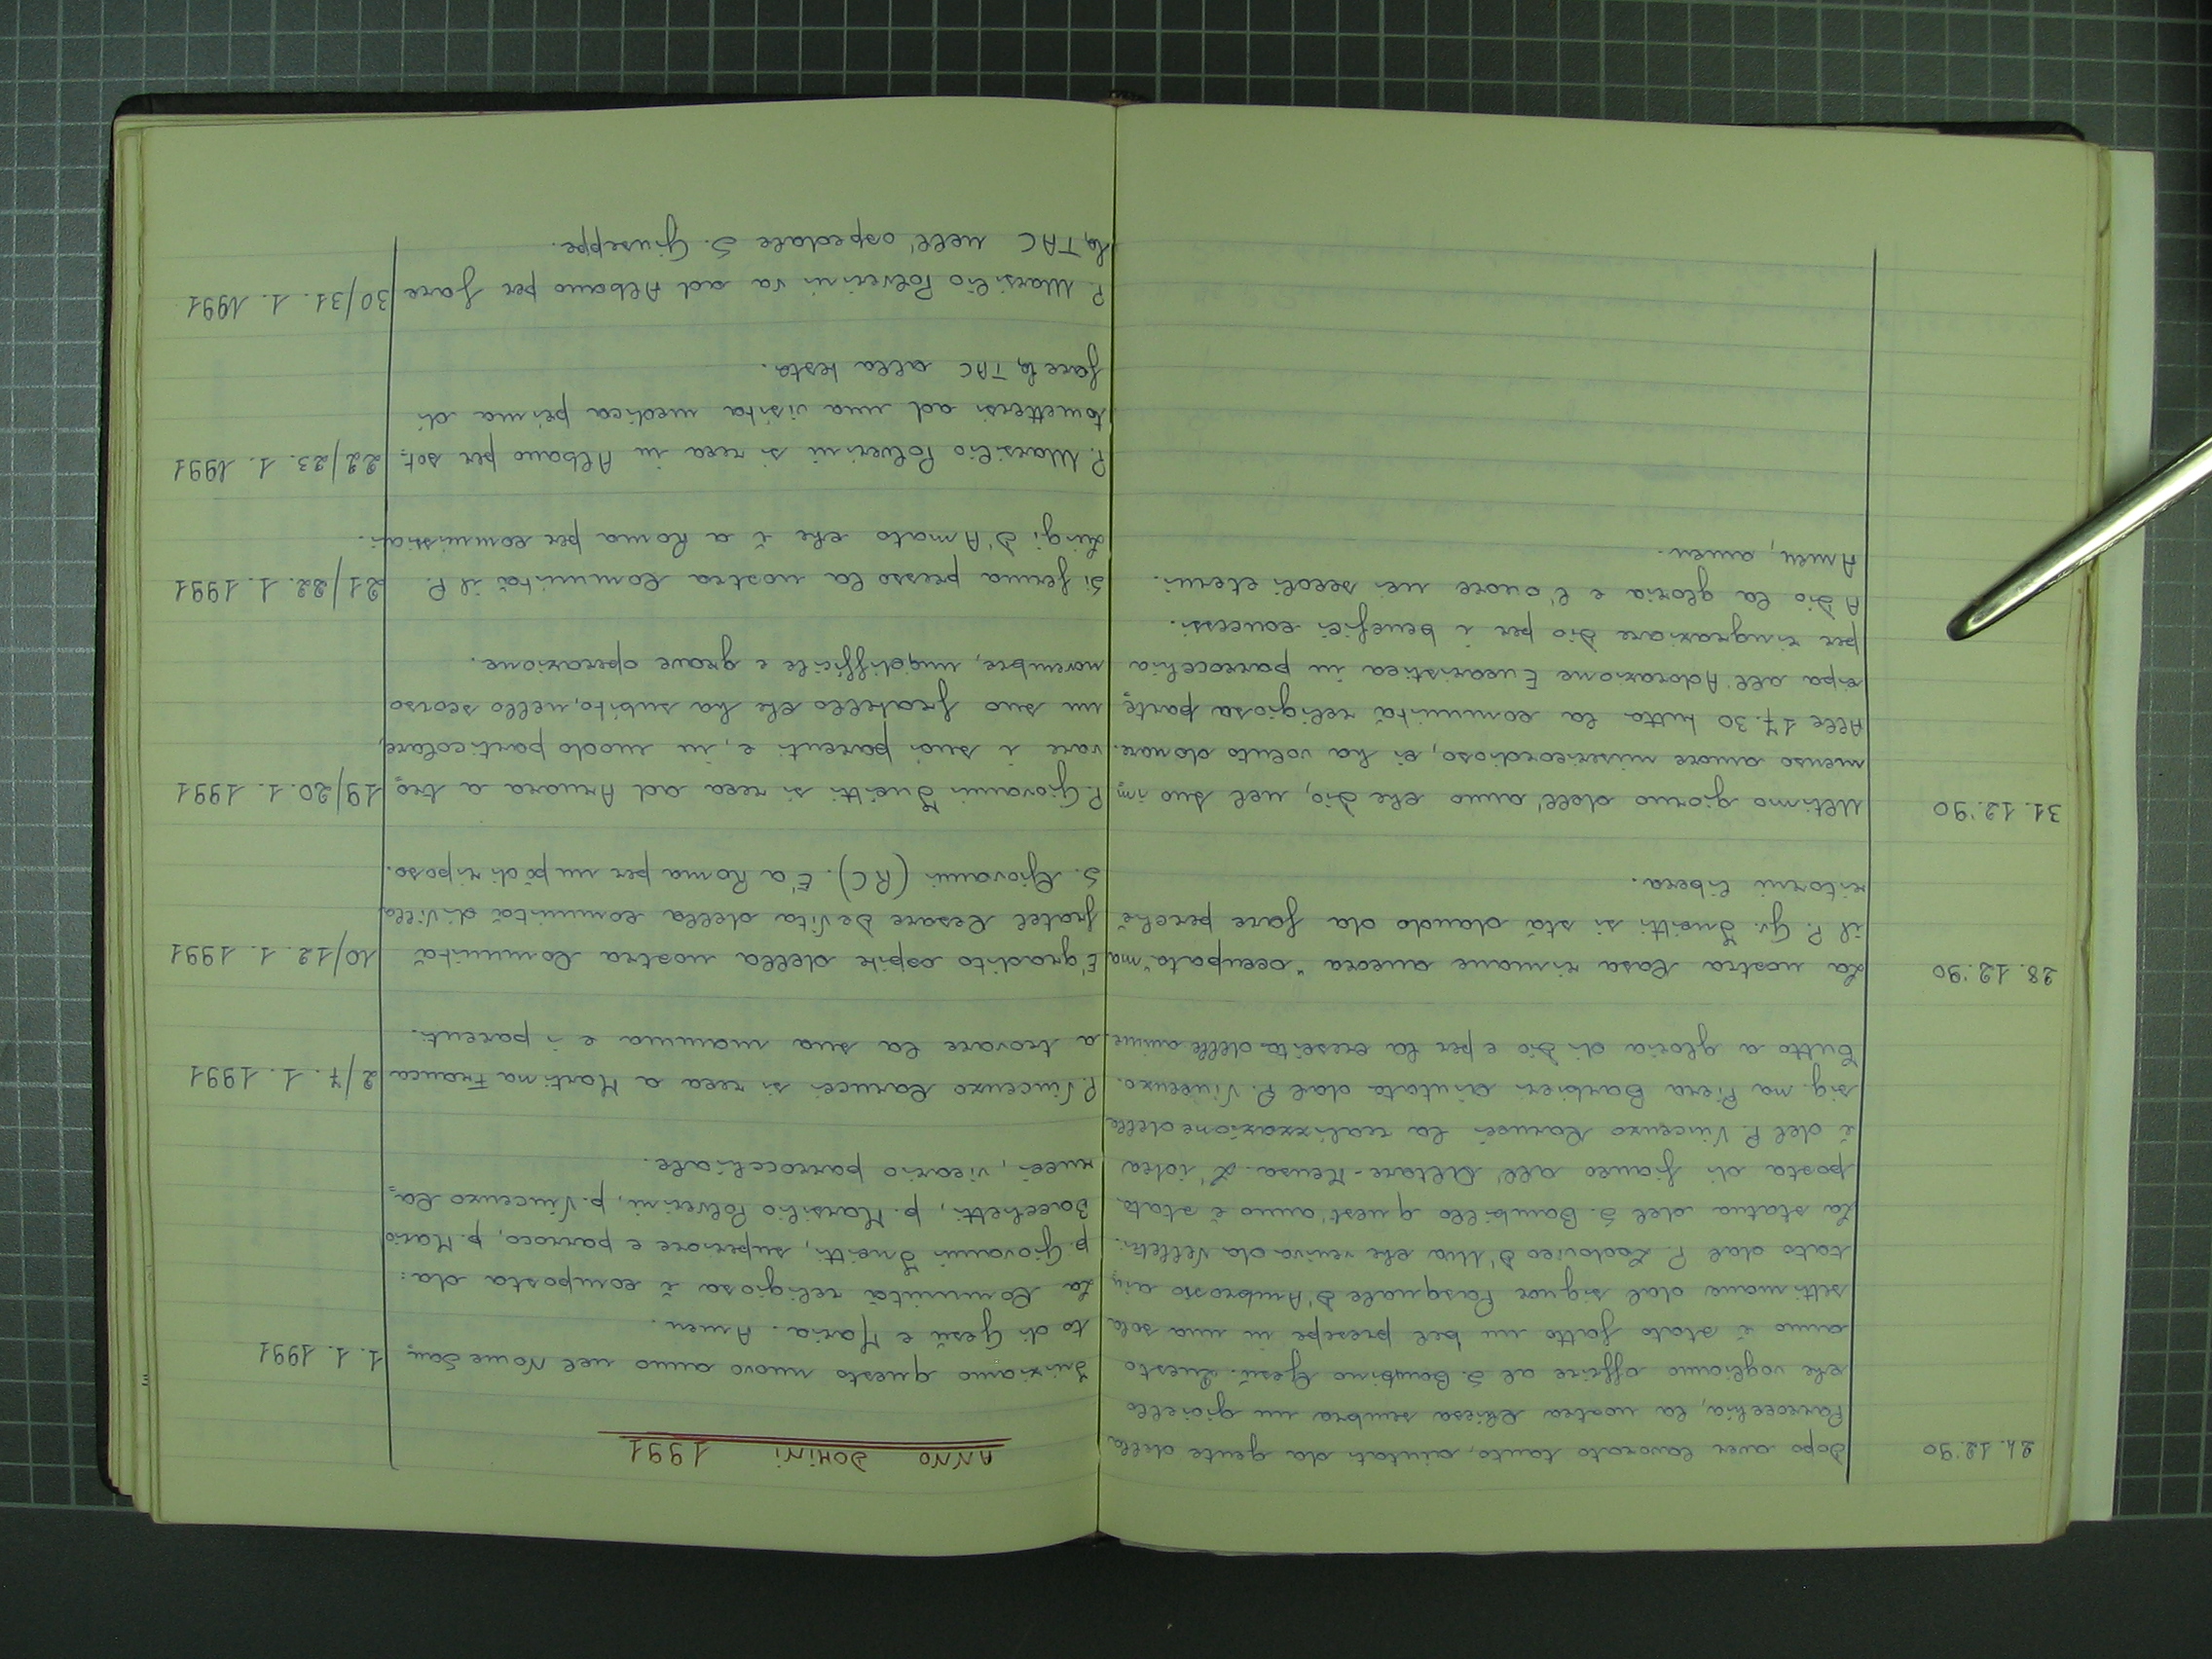 24.12.'90 Dopo aver lavorato tanto, aiutati da gente della
Parrocchia, la nostra Chiesa sembra un gioiello
che vogliamo offrire al S. Bambino Gesù. Questo
anno è stato fatto un bel presepe in una sola
settimana dal signor Pasquale D'Ambrosio aiu=
tato dal P. Lodovico D'Uva che veniva da Velletri.
La statua del S. Bambino quest'anno è stata
posta di fianco all'Altare-Mensa. L'idea
è del P. Vincenzo Carucci la realizzazione della
sig.ma Piera Barbieri aiutata dal P. Vincenzo.
Tutto a gloria di Dio e per la crescita delle anime.
28.12.'90 La nostra Casa rimane ancora "occupata" ma
il P. Gv. Zuaitti si stà dando da fare perchè
ritorni libera.
31.12.'90 Ultimo giorno dell'anno che Dio, nel suo im=
menso amore misericordioso, ci ha voluto donare.
Alle 17.30 tutta la comunità religiosa parte=
cipa all'Adorazione Eucaristica in parrocchia
per ringraziare Dio per i benefici concessi.
A Dio la gloria e l'onore nei secoli eterni.
Amen, amen.
ANNO DOMINI 1991
Iniziamo questo nuovo anno nel Nome San= 1.1.1991
to di Gesù e Maria. Amen.
La Comunità religiosa è composta da:
p. Giovanni Zuaitti, superiore e parroco, p. Mario
Zacchetti, p. Marsilio Polverini, p. Vincenzo Ca=
rucci, vicario parrocchiale.
P. Vincenzo Carucci si reca a Martina Franca 2/7.1.1991
a trovare la sua mamma e i parenti.
E' gradito ospite della nostra Comunità 10/12.1.1991
fratel Cesare De Vita della comunità di Villa
S. Giovanni (RC). E' a Roma per un pò di riposo.
P. Giovanni Zuaitti si reca ad Arnara a tro= 19/20.1.1991
vare i suoi parenti e, in modo particolare,
un suo fratello che ha subito, nello scorso
novembre, una difficile e grave operazione.
Si ferma presso la nostra Comunità il P. 21/22.1.1991
Luigi D'Amato che è a Roma per commissioni.
P. Marsilio Polverini si reca in Albano per sot= 22/23.1.1991
tomettersi ad una visita medica prima di
fare la TAC alla testa.
P. Marsilio Polverini va ad Albano per fare 30/31.1.1991
la TAC nell'ospedale S. Giuseppe.